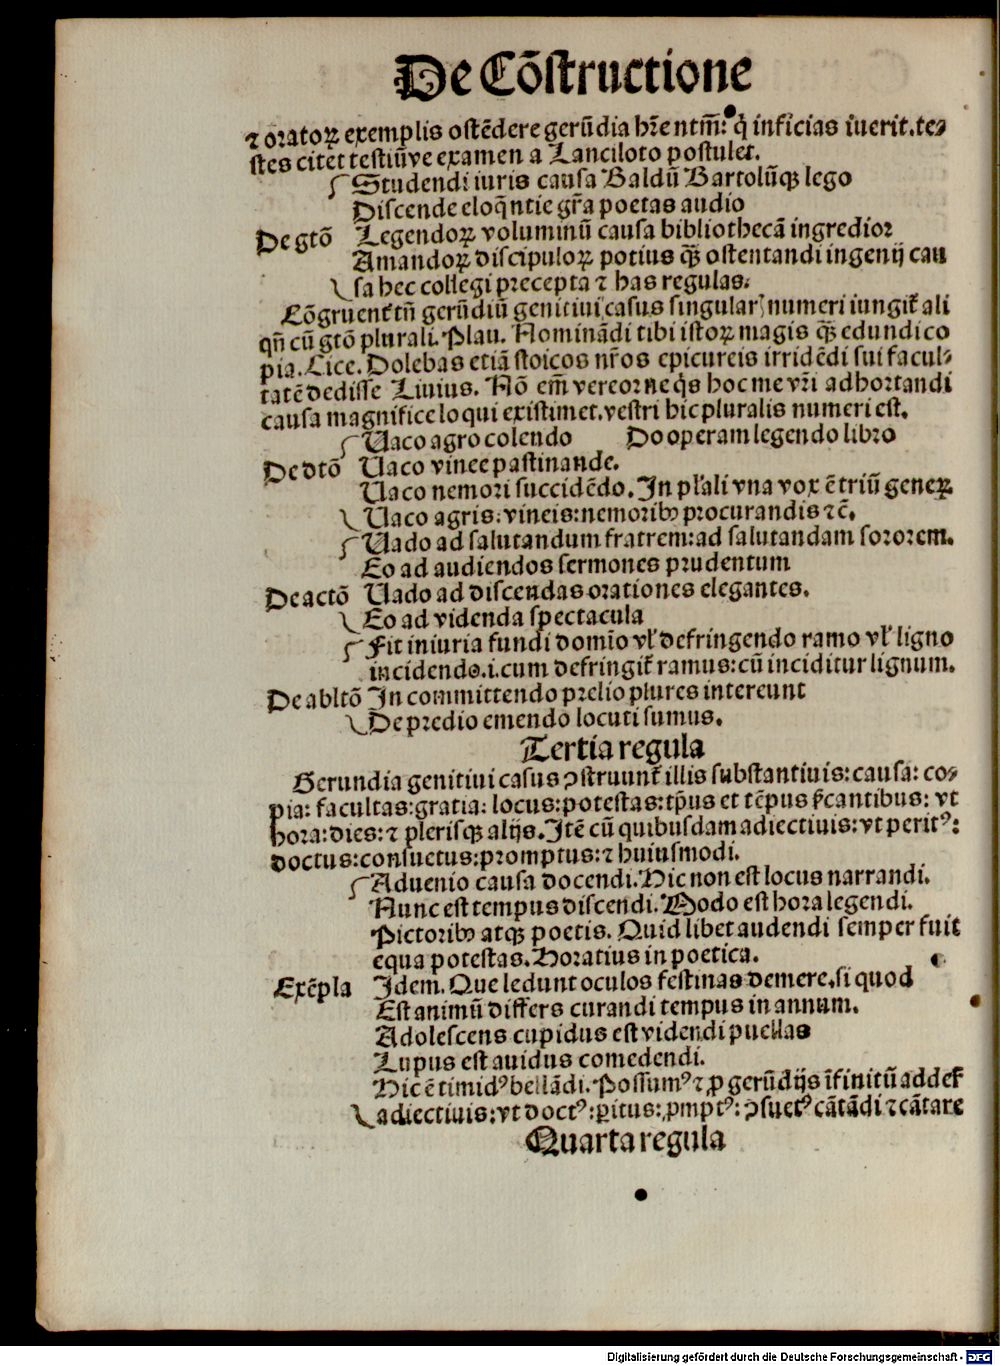 De Cōſtructione
⁊ oratoꝝ exemplis oſtēdere gerūdia hr̄e ntm̄: q̇ inficias iuerit.te⸗
ſtes citet teſtiūve examen a Lanciloto poſtulet.
Studendi iuris cauſa Baldū Bartolūqꝫ lego
Diſcende eloq̄ntie gr̄a poetas audio
De gtō Legendoꝝ voluminū cauſa bibliothecā ingredioꝛ
Amandoꝝ diſcipuloꝝ potius qꝫ̄ oſtentandi ingenij cau
ſa hec collegi precepta ⁊ has regulas.
Cōgruent᷑ tn̄ gerūdiū genitiui caſus ſingularꝭ numeri iungit᷑ ali
qn̄ cū gtō plurali. Plau. Nominādi tibi iſtoꝝ magis qꝫ̄ edundi co
pia. Cice. Dolebas etiā ſtoicos nr̄os epicureis irridēdi ſui facul⸗
tatē dediſſe Liuius. Nō em̄ vereor ne q̇s hoc me vr̄i adhortandi
cauſa magnifice loqui exiſtimet. veſtri hic pluralis numeri eſt.
Uaco agro colendo Do operam legendo libro
De dtō Uaco vinee paſtinande.
Uaco nemori ſuccidēdo. In pl'ali vna vox ē triū generꝝ
Uaco agris: vineis: nemoribꝫ procurandis ⁊c̄.
Uado ad ſalutandum fratrem: ad ſalutandam ſororem.
Eo ad audiendos ſermones prudentum
De actō Uado ad diſcendas orationes elegantes.
Eo ad videnda ſpectacula
Fit iniuria fundi domīo vl' defringendo ramo vl' ligno
incidendo.i.cum defringit᷑ ramus: cū inciditur lignum.
De abltō In committendo prelio plures intereunt
De predio emendo locuti ſumus.
Tertia regula
Gerundia genitiui caſus ꝯſtruunt᷑ illis ſubſtantiuis: cauſa: co⸗
pia: facultas: gratia: locus: poteſtas: tp̄us et tēpus ſc̄cantibus: vt
hora: dies: ⁊ pleriſqꝫ alijs. Itē cū quibuſdam adiectiuis: vt peritꝰ:
doctus: conſuetus: promptus: ⁊ huiuſmodi.
Aduenio cauſa docendi. Hic non eſt locus narrandi.
Nunc eſt tempus diſcendi. Modo eſt hora legendi.
Pictoribꝫ atqꝫ poetis. Quid libet audendi ſemper fuit
equa poteſtas. Horatius in poetica.
Exēpla Idem. Que ledunt oculos feſtinas demere. ſi quod
Eſt animū differs curandi tempus in annum.
Adoleſcens cupidus eſt videndi puellas
Lupus eſt auidus comedendi.
Hic ē timidꝰ bellādi. Poſſumꝰ ⁊ ꝓ gerūdijs īfinitū adder̄
adiectiuis: vt doctꝰ: ꝑitus: ꝓmptꝰ: ꝯſuetꝰ cātādi ⁊ cātare
Quarta regula
Digitalisierung gefördert durch die Deutsche Forschungsgemeinschaft - DFG